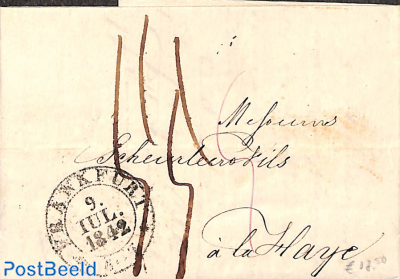 Messieurs
Scheurleer & Fils
à la Haye
FRANKFURT
9.
IUL.
1842
PostBeeld